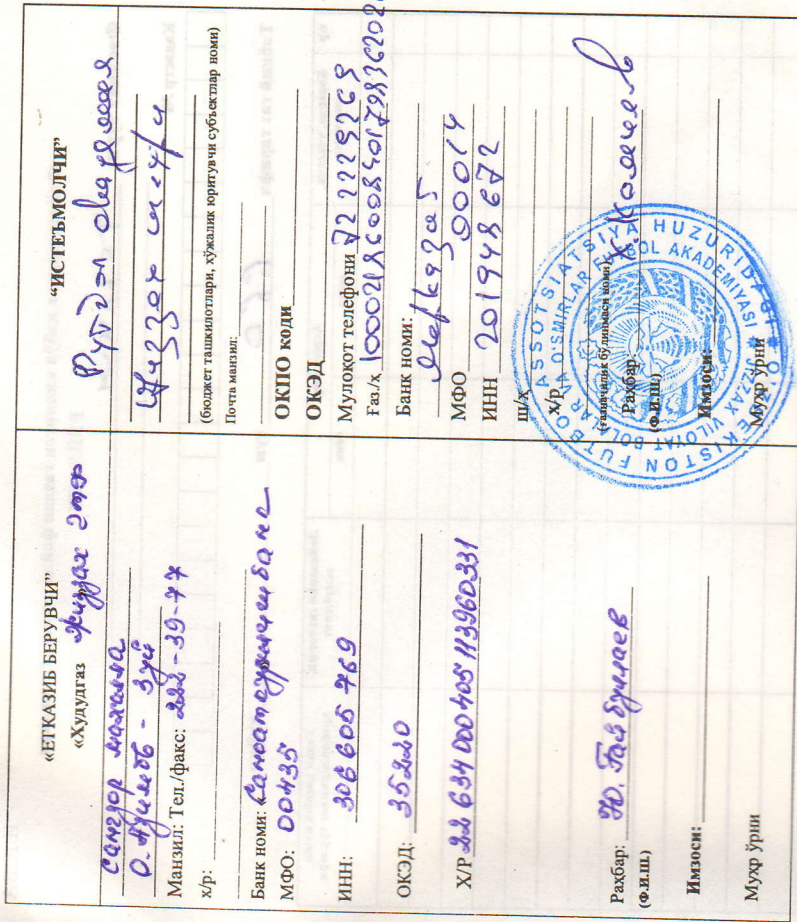 «ЕТКАЗИБ БЕРУВЧИ”
«Худудгаз Жиззах ЭТФ
Сангзор махалла
О. Азимов - 3уй
Манзил: Тел./факс: 222-39-77
х/р:
Банк номи: Саноатқурилишбанк
МФО: 00435
ИНН: 306 605 769
ОКЭД: 35220
Х/Р 22 634 000 405 113960331
Раҳбар: Ю.
(Ф.И.Ш.)
Имзоси:
Муҳр ўрни
“ИСТЕЪМОЛЧИ”
Футбол академия
Жиззах ш
(бюджет ташкилотлари, хўжалик юритувчи субъектлар номи)
Почта манзил:
ОКПО коди
ОКЭД
Мулоқот телефони 72 2229269
Ғаз/х
Банк номи:
МФО 00014
ИНН 201948672
ш/х
х/р
(ғазначилик бўлинмаси номи)
Раҳбар Х.
(Ф.И.Ш.)
Имзоси:
Муҳр ўрни
O'ZBEKISTON FUTBOL ASSOTSIATSIYA HUZURIDAGI
BOLALAR VA O'SMIRLAR FUTBOL AKADEMIYASI JIZZAX VILOYAT